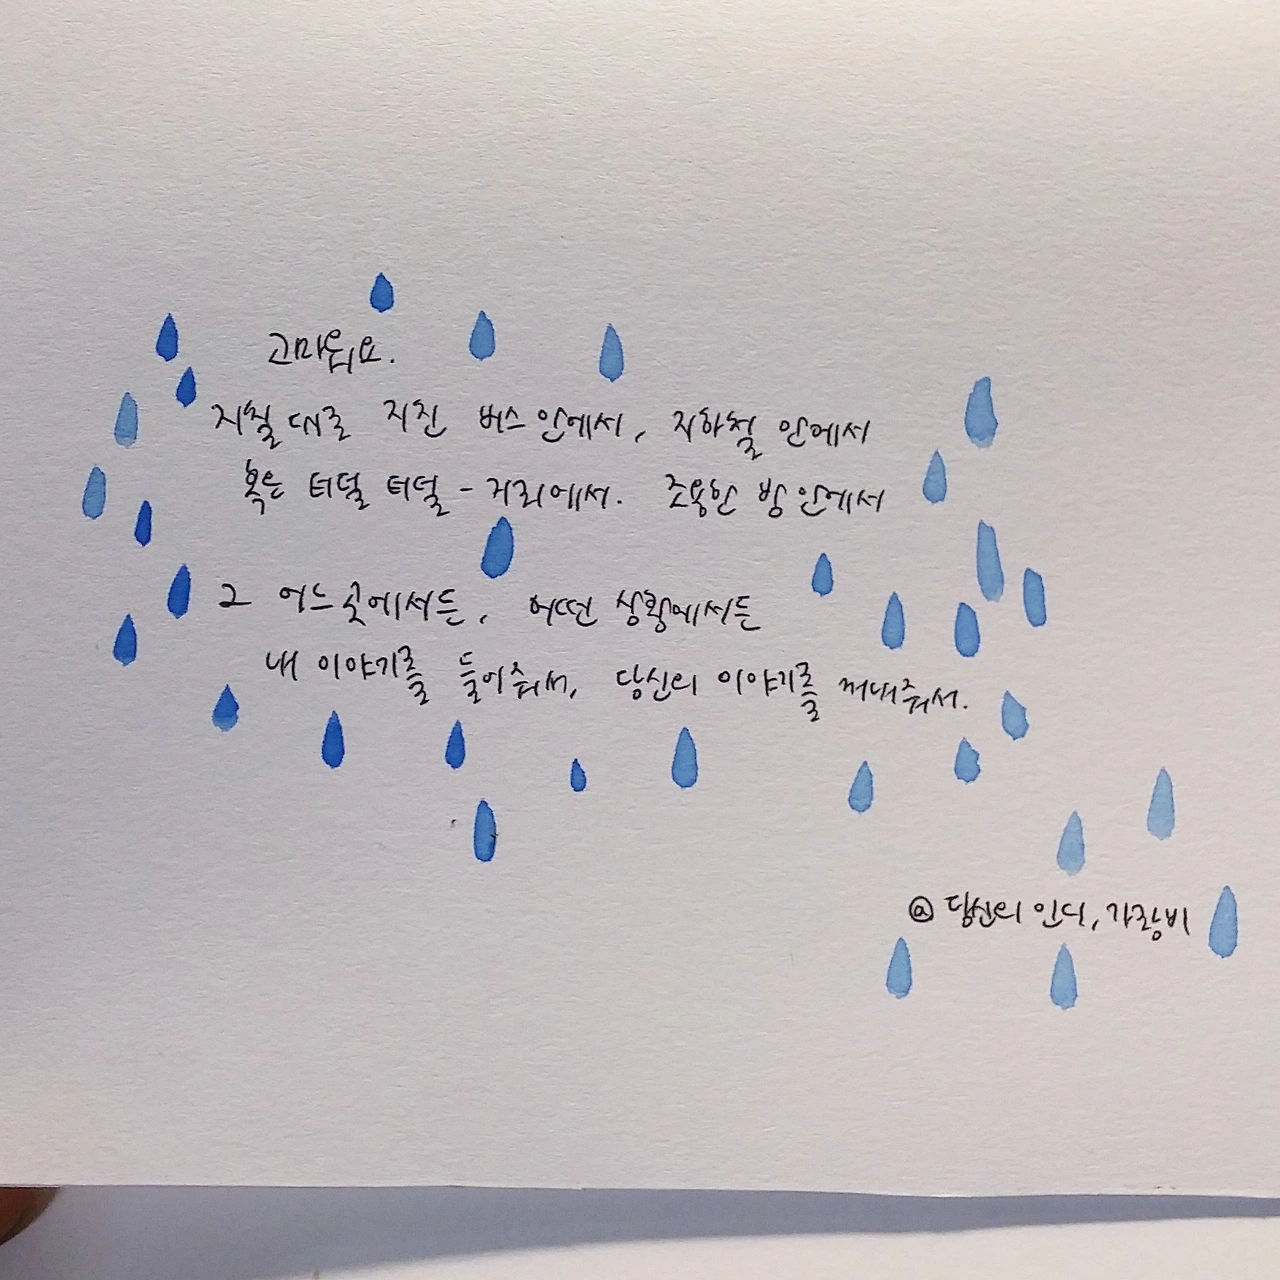 고마워요.
지칠 대로 지친 버스 안에서, 지하철 안에서
혹은 터덜 터덜 - 거리에서. 조용한 방 안에서
그 어느 곳에서든, 어떤 상황에서든
내 이야기를 들어줘서, 당신의 이야기를 꺼내줘서.
@ 당신의 인디, 가랑비